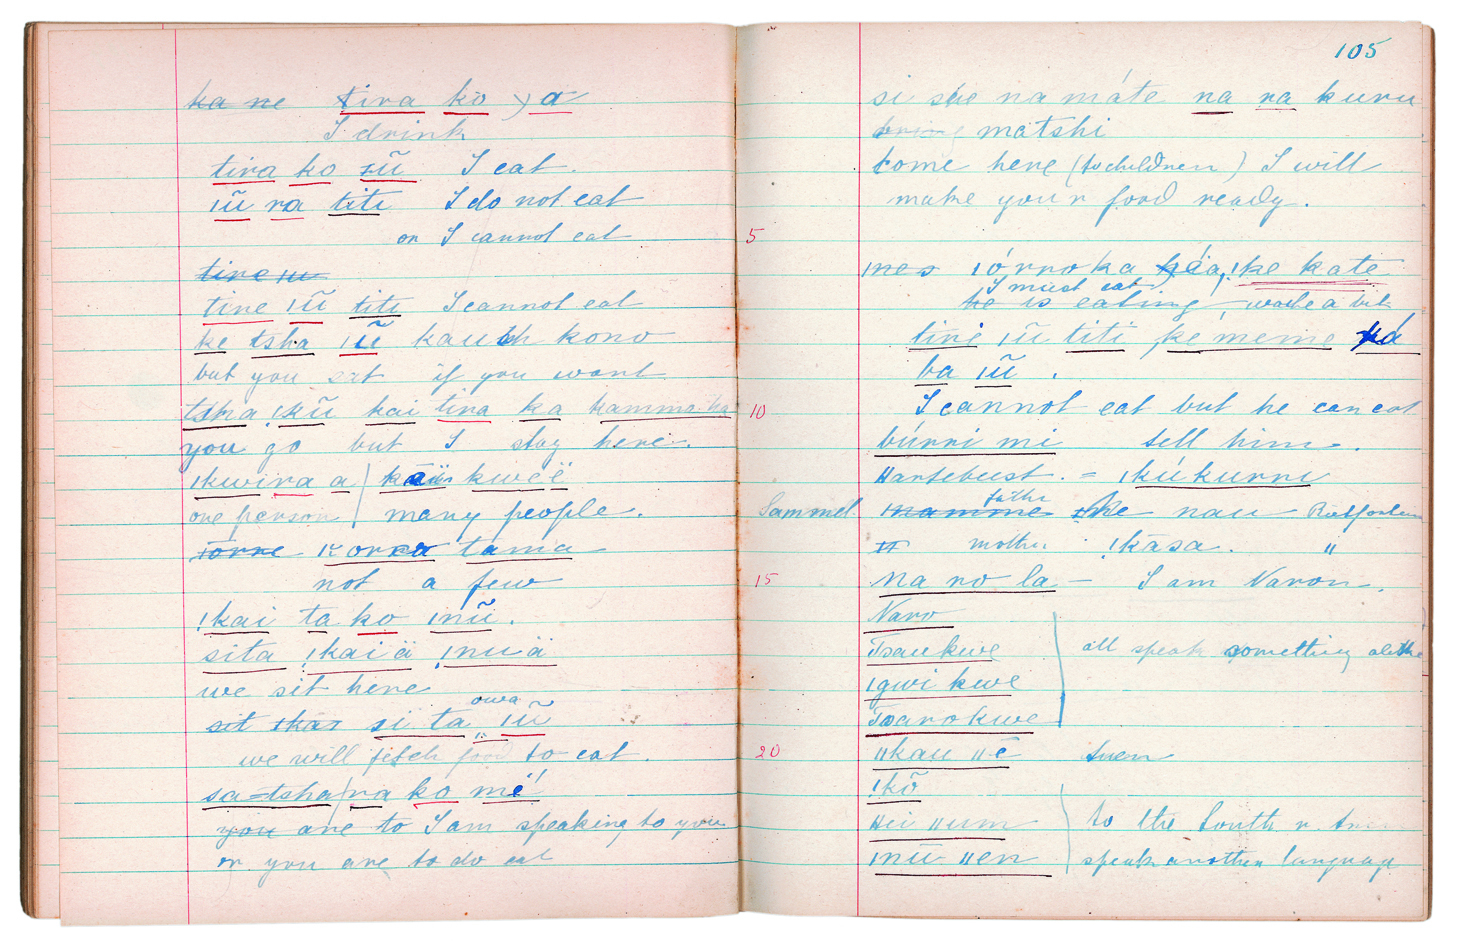 ka ne tira ko ) a
I drink
tira ko ıũ I eat.
ıũ ra titi I do not eat
or I cannot eat
tire ıu
tire ıũ titi I cannot eat
ke tsha ıũ kono
but you eat if you want
tsha !kũ kai tira ka kamma
you go but I stay here.
ıkwira a | kwëë
one person | many people.
tama
not a few
!kai ta ko ınũ.
sita !kaiä ınuä
we sit here
owa
sit si ta ıũ
we will fetch food to eat.
sa=tsha ra ko mé
you are to I am speaking to you
or you are to do eat
5
10
15
20
105
si she na máte na ra kuru
bring matshi
come here (to children) I will
make your food ready.
ınes ıórroka !ke kate
I must eat
he is eating
tiri ıũ titi ke meme
ba ıũ.
I cannot eat but he can eat
búrri mi tell him.
Hartebeest. = ıkúkurru
father
Sammel ınamme nau
ıı mother !kāsa. ıı
Na ro la — I am Naron.
Naro
Tsaukwe all speak something
ıgwi kwe
Tsarokwe
ııkau ııē
!kõ
Hei ııum to the South
ınū ııen speak another language